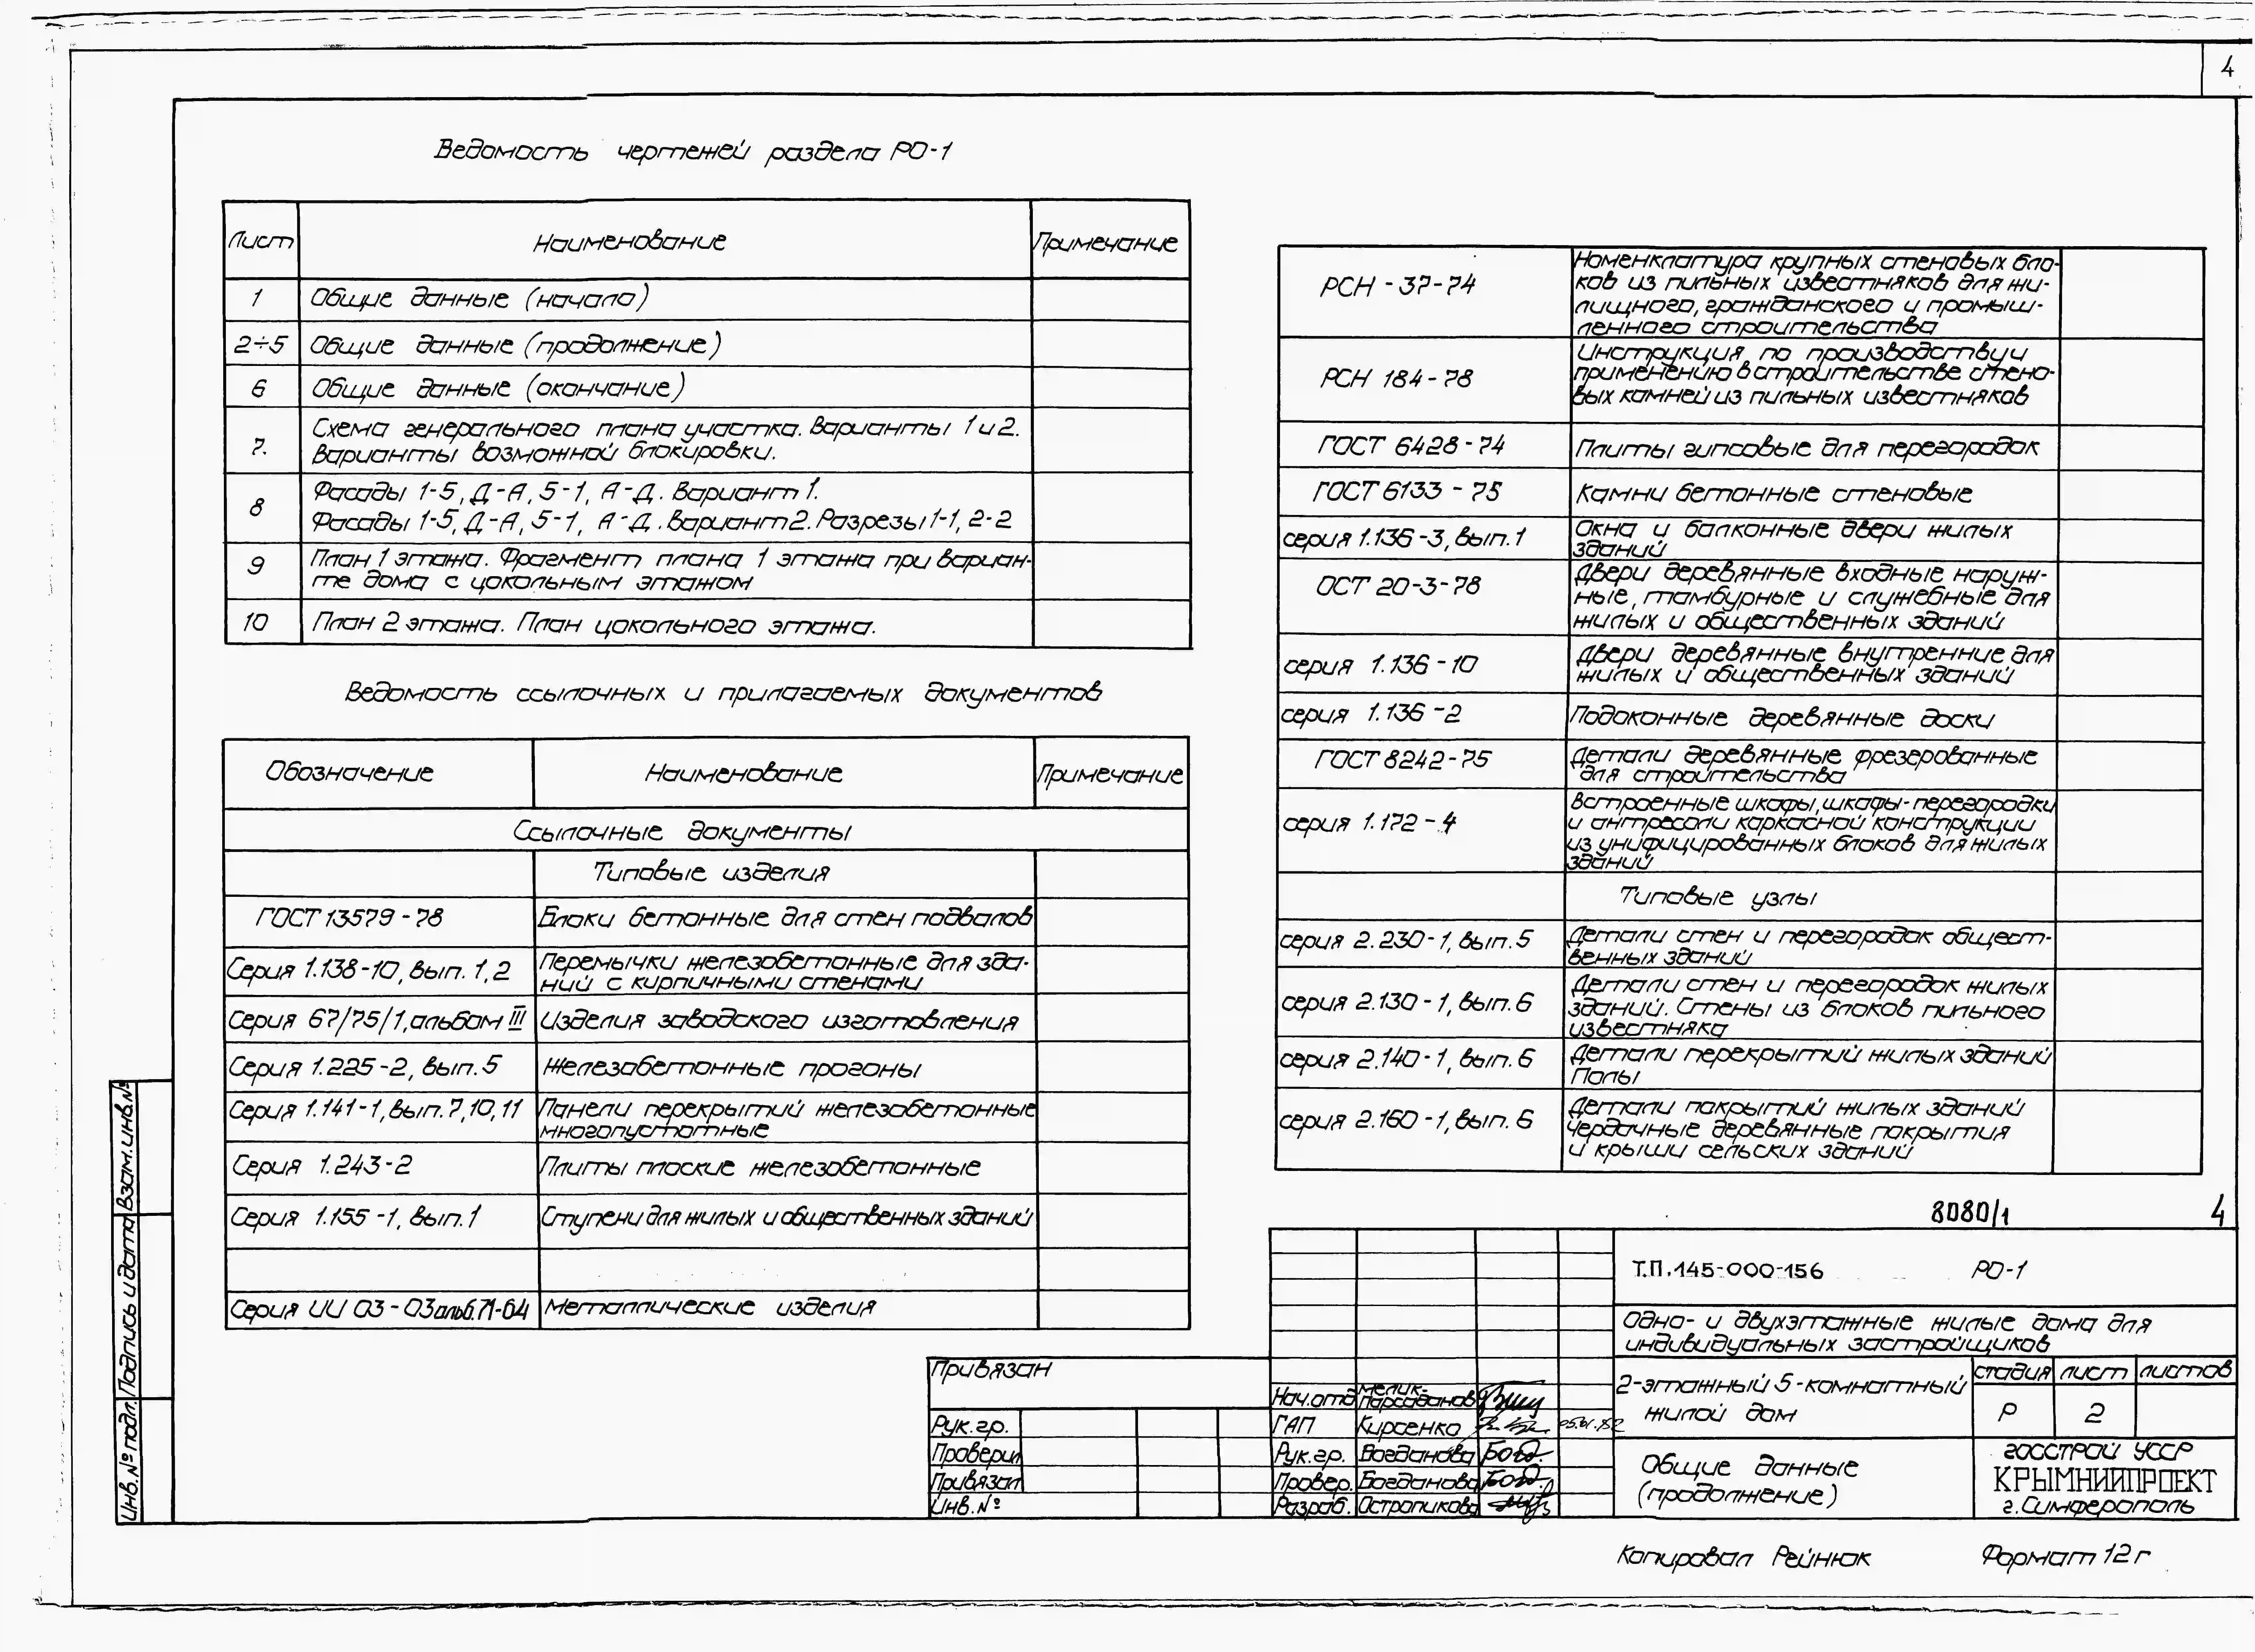 4
Ведомость чертежей раздела РО-1
Лист Наименование Примечание
1 Общие данные (начало)
2÷5 Общие данные (продолжение)
6 Общие данные (окончание)
7. Схема генерального плана участка. Варианты 1 и 2.
Варианты возможной блокировки.
8 Фасады 1-5, Д-А, 5-1, А-Д. Вариант 1.
Фасады 1-5, Д-А, 5-1, А-Д. Вариант 2. Разрезы 1-1, 2-2
9 План 1 этажа. Фрагмент плана 1 этажа при вариан-
те дома с цокольным этажом
10 План 2 этажа. План цокольного этажа.
Ведомость ссылочных и прилагаемых документов
Обозначение Наименование Примечание
Ссылочные документы
Типовые изделия
ГОСТ 13579-78 Блоки бетонные для стен подвалов
Серия 1.138-10, вып. 1,2 Перемычки железобетонные для зда-
ний с кирпичными стенами
Серия 67/75/1, альбом III Изделия заводского изготовления
Серия 1.225-2, вып. 5 Железобетонные прогоны
Серия 1.141-1, вып. 7,10,11 Панели перекрытий железобетонные
многопустотные
Серия 1.243-2 Плиты плоские железобетонные
Серия 1.155-1, вып. 1 Ступени для жилых и общественных зданий
Серия ИИ 03-03 альб. 71-64 Металлические изделия
РСН-37-74 Номенклатура крупных стеновых бло-
ков из пильных известняков для жи-
лищного, гражданского и промыш-
ленного строительства
РСН 184-78 Инструкция по производству и
применению в строительстве стено-
вых камней из пильных известняков
ГОСТ 6428-74 Плиты гипсовые для перегородок
ГОСТ 6133-75 Камни бетонные стеновые
серия 1.136-3, вып. 1 Окна и балконные двери жилых
зданий
ОСТ 20-3-78 Двери деревянные входные наруж-
ные, тамбурные и служебные для
жилых и общественных зданий
серия 1.136-10 Двери деревянные внутренние для
жилых и общественных зданий
серия 1.136-2 Подоконные деревянные доски
ГОСТ 8242-75 Детали деревянные фрезерованные
для строительства
серия 1.172-4 Встроенные шкафы, шкафы-перегородки
и антресоли каркасной конструкции
из унифицированных блоков для жилых
зданий
Типовые узлы
серия 2.230-1, вып. 5 Детали стен и перегородок общест-
венных зданий
серия 2.130-1, вып. 6 Детали стен и перегородок жилых
зданий. Стены из блоков пильного
известняка
серия 2.140-1, вып. 6 Детали перекрытий жилых зданий
Полы
серия 2.160-1, вып. 6 Детали покрытий жилых зданий
Чердачные деревянные покрытия
и крыши сельских зданий
8080/1 4
Т.П. 145-000-156 РО-1
Одно- и двухэтажные жилые дома для
индивидуальных застройщиков
2-этажный 5-комнатный
жилой дом
стадия лист листов
Р 2
Общие данные
(продолжение)
госстрой УССР
КРЫМНИИПРОЕКТ
г. Симферополь
Нач.отд Мелик-
Парсаданов
ГАП Кирсенко 05.01.82
Рук.гр. Богданова Богд.
Провер. Богданова Богд.
Разраб. Остропикова
Привязан
Рук.гр.
Проверил
Привязал
Инв.№
Взам.инв.№
Подпись и дата
Инв.№ подл.
Копировал Рейнюк Формат 12г